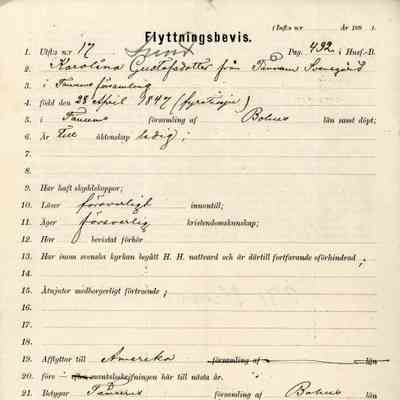 (Inft:s n:r År 189 .)
Flyttningsbevis.
1. Utfl:s n:r 17 Pag. 432 i Husf.-B.
2. Karolina Gustafsdotter från Tanum
3. i Tanums församling
4. född den 28 April 1847 (fyratiosju)
5. i Tanums församling af Bohus län samt döpt;
6. Är till äktenskap ledig;
7.
8.
9. Har haft skyddskoppor;
10. Läser försvarligt innantill;
11. Äger försvarlig kristendomskunskap;
12. Har bevistat förhör
13. Har inom svenska kyrkan begått H. H. nattvard och är därtill fortfarande oförhindrad;
14.
15. Åtnjuter medborgerligt förtroende;
16.
17.
18.
19. Afflyttar till Amerika församling af län
20. före efter mantalsskrifningen här till nästa år.
21. Betygar Tanums församling af Bohus län